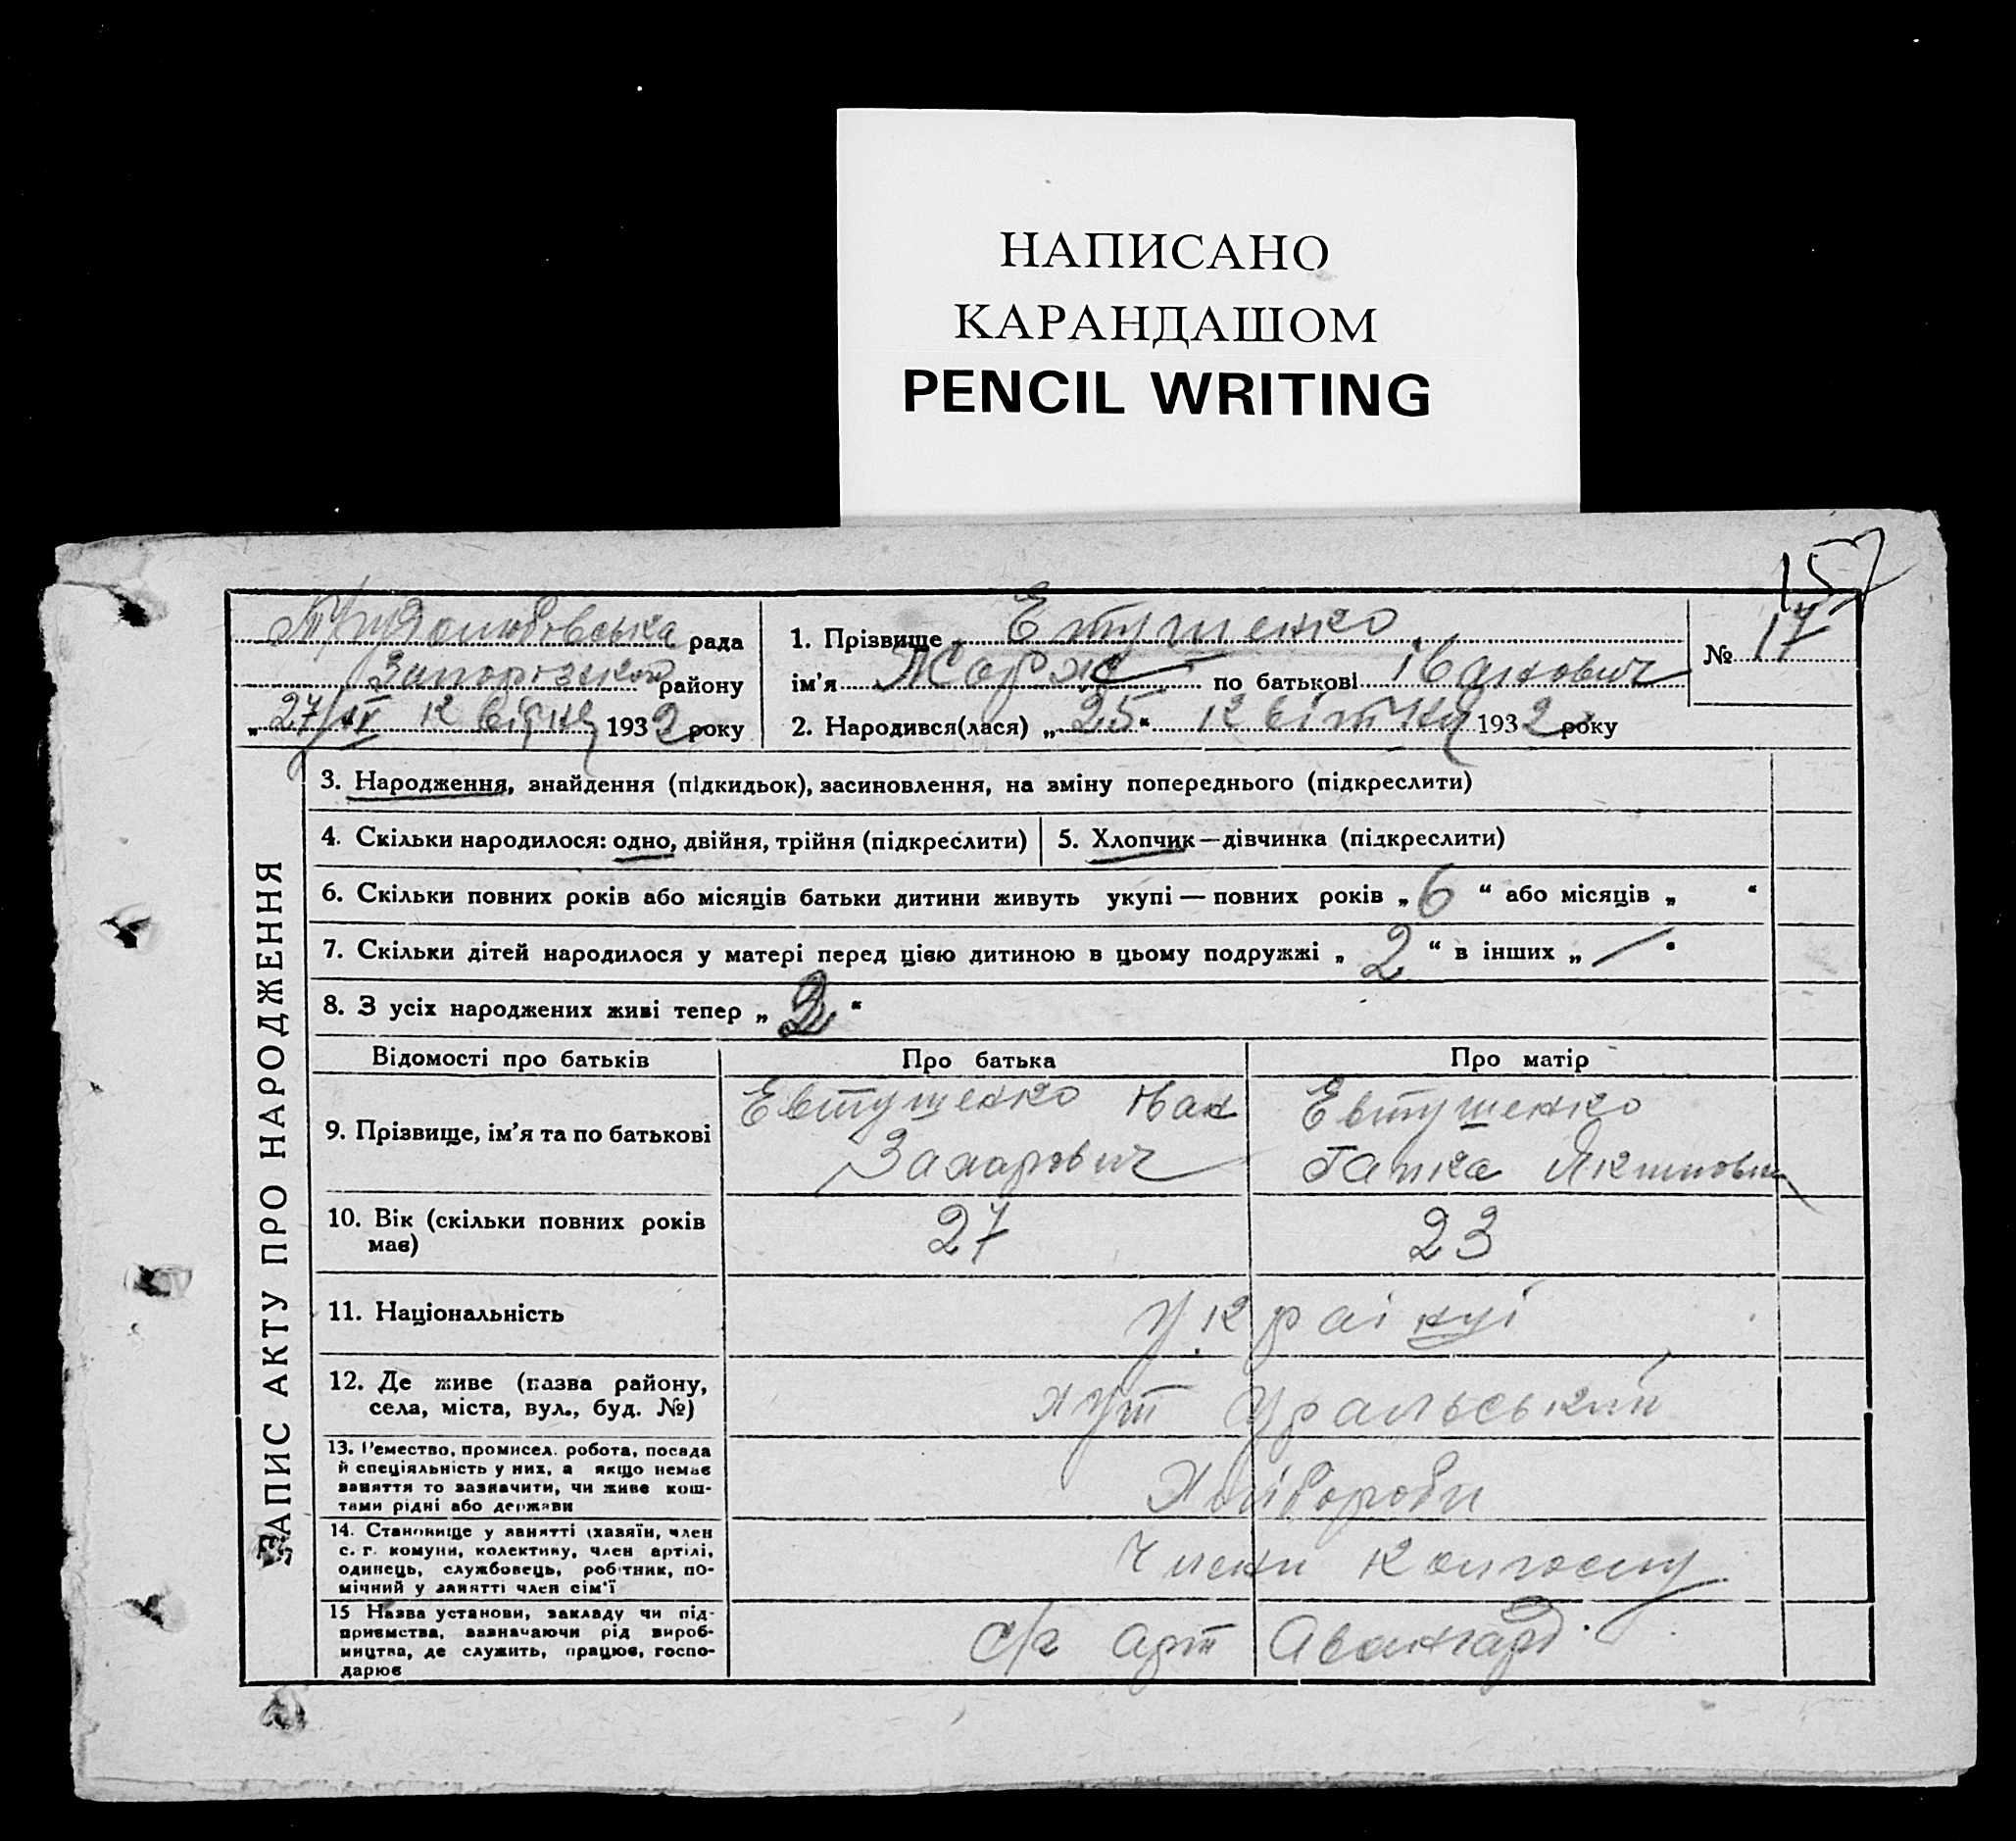 НАПИСАНО
КАРАНДАШОМ
PENCIL WRITING
157
Трудолюбовська рада
Запорізького району
„27/IV квітня 1932 року
1. Прізвище Етушенко
ім'я Жорж по батькові Іванович
№ 17
2. Народився(лася) „25“ квітня 1932 року
ЗАПИС АКТУ ПРО НАРОДЖЕННЯ
3. Народження, знайдення (підкидьок), засиновлення, на зміну попереднього (підкреслити)
4. Скільки народилося: одно, двійня, трійня (підкреслити)
5. Хлопчик—дівчинка (підкреслити)
6. Скільки повних років або місяців батьки дитини живуть укупі — повних років „6“ або місяців „ “
7. Скільки дітей народилося у матері перед цією дитиною в цьому подружжі „2“ в інших „—“
8. З усіх народжених живі тепер „2“
Відомості про батьків Про батька Про матір
9. Прізвище, ім'я та по батькові
Евтушенко Іван
Захарович
Евтушенко
Гапка
10. Вік (скільки повних років
має)
27
23
11. Національність
Українці
12. Де живе (назва району,
села, міста, вул., буд. №)
хут Уральський
13. Ремество, промисел. робота, посада
й спеціяльність у них, а якщо немає
заняття то зазначити, чи живе кош-
тами рідні або держави
Хлібороби
14. Становище у занятті (хазяїн, член
с. г. комуни, колективу, член артілі,
одинець, службовець, робітник, по-
мічний у занятті член сім'ї
Члени колгоспу
15 Назва установи, закладу чи під-
приємства, зазначаючи рід вироб-
ництва, де служить, працює, госпо-
дарює
с/г арт Авангард.